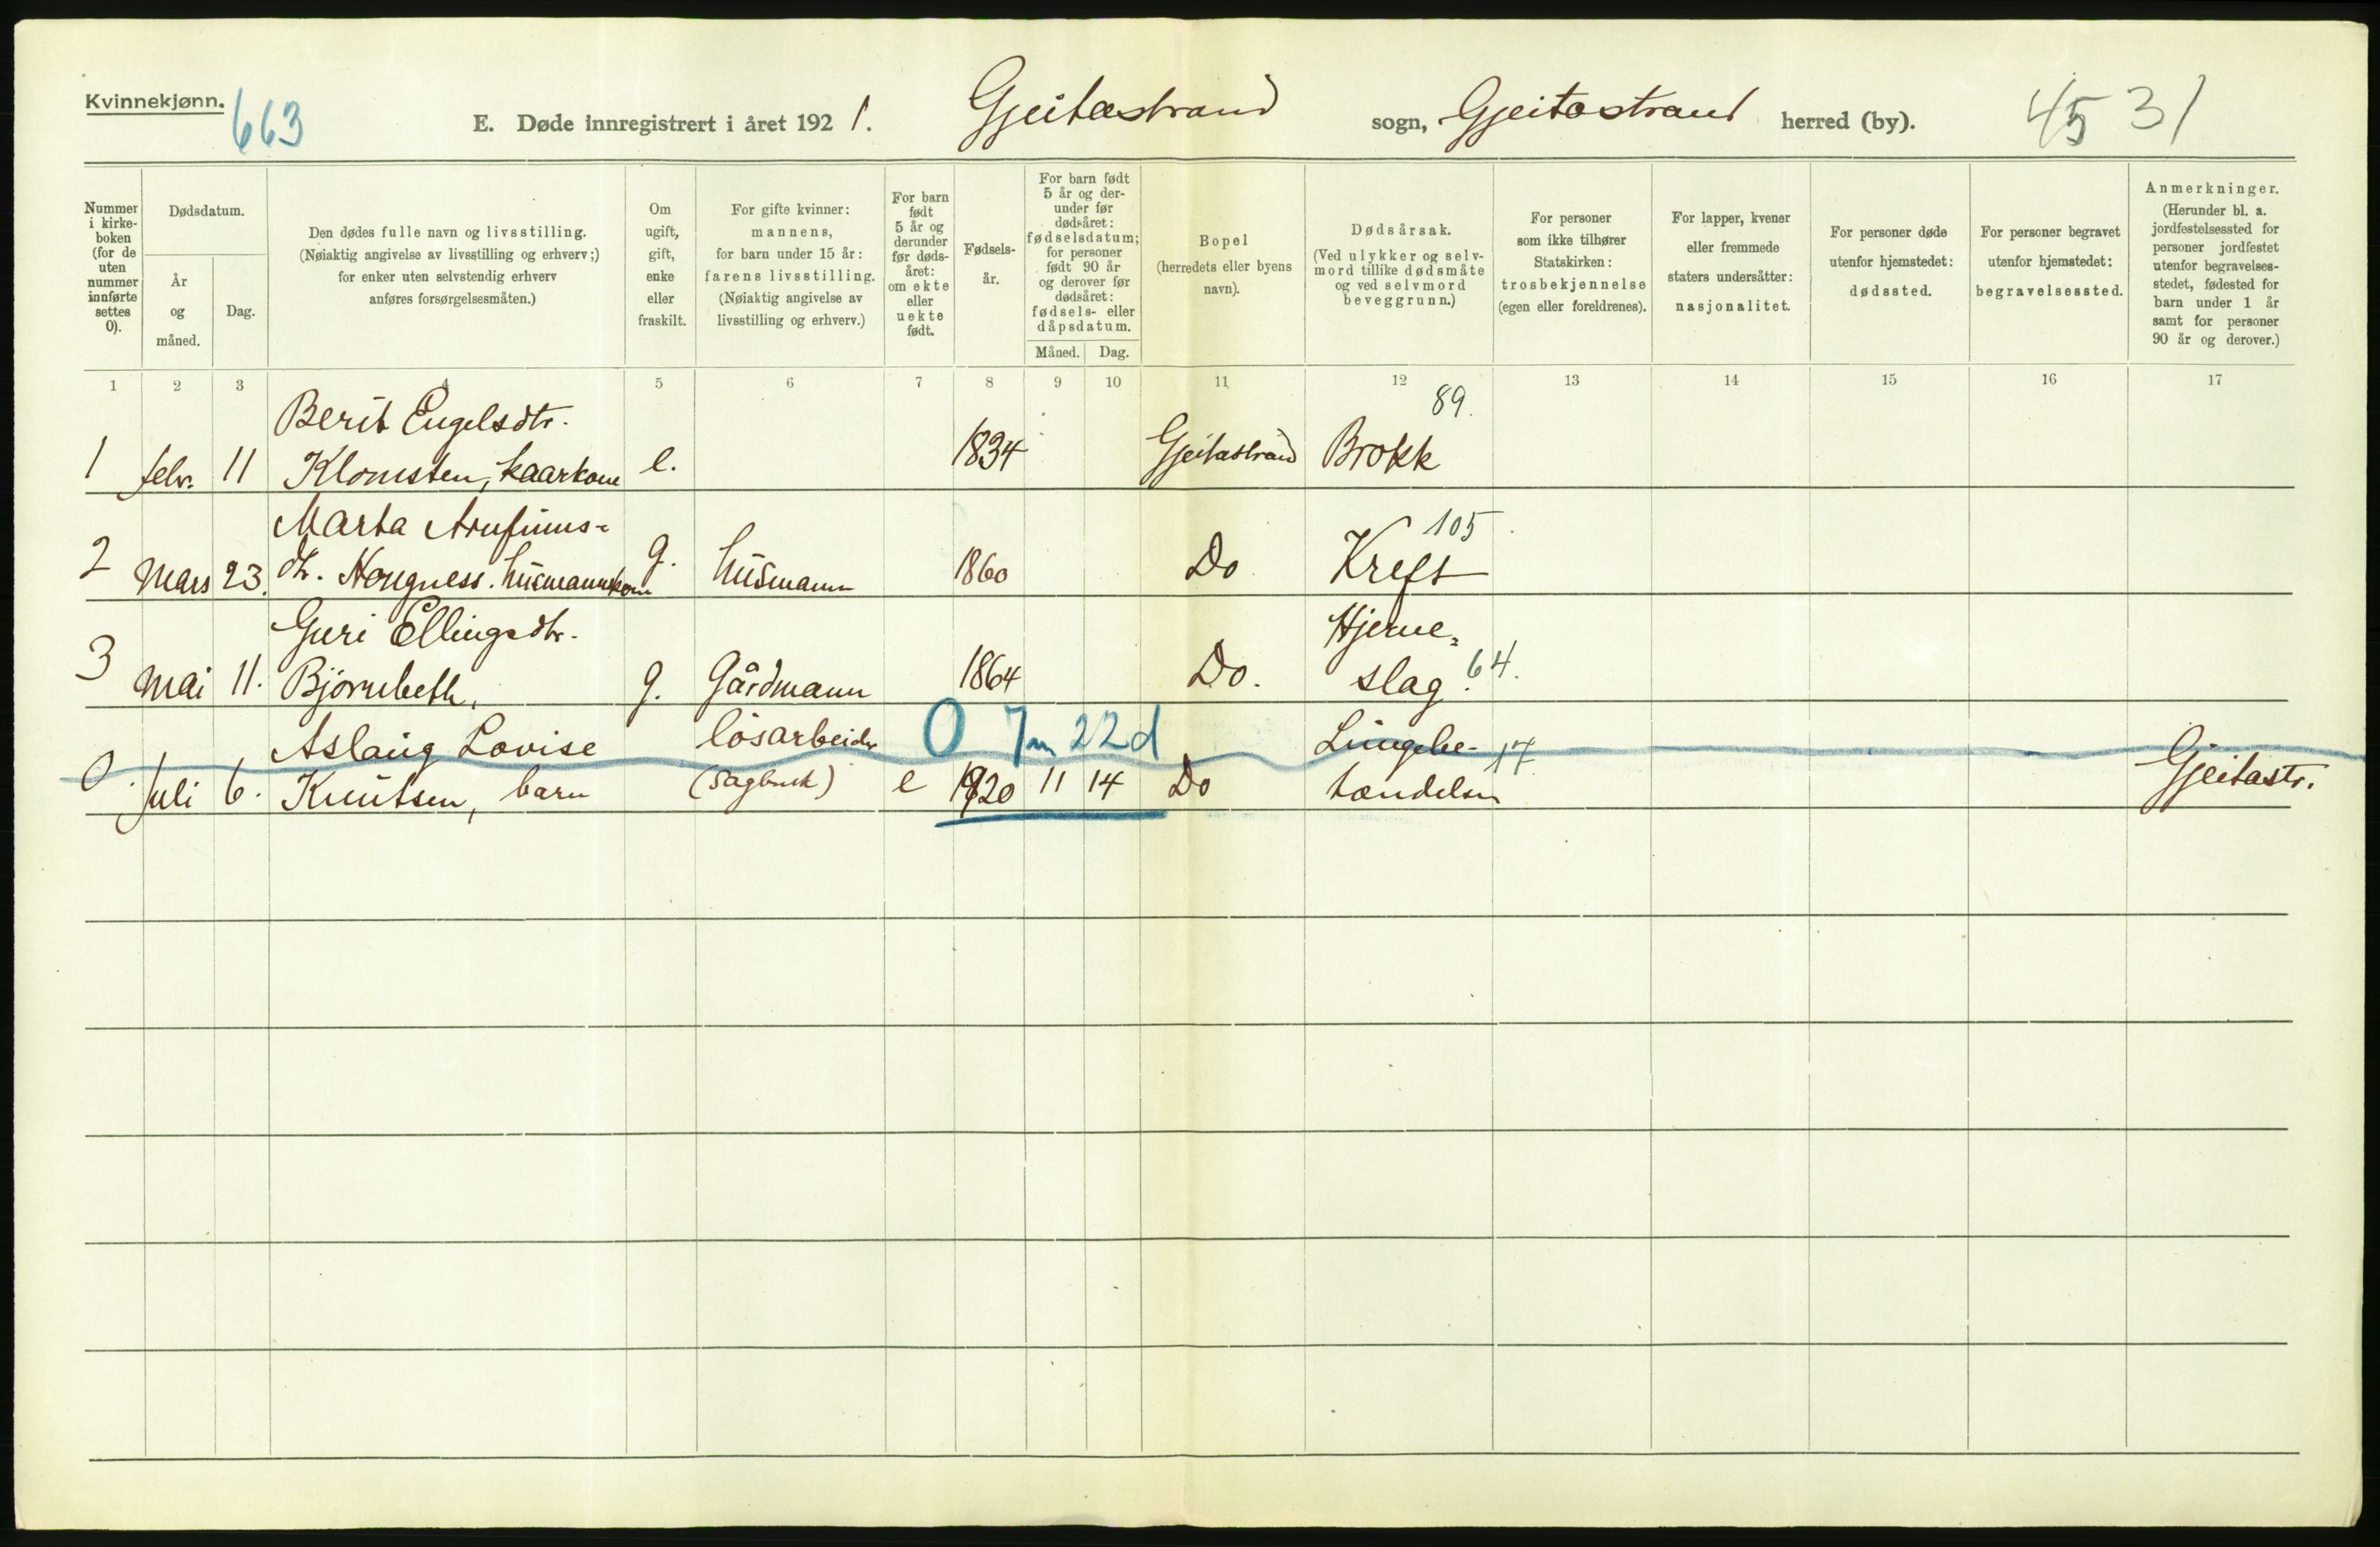 Kvinnekjønn.
663
E. Døde innregistrert i året 1921.
Gjeitastrand sogn, Gjeitastrand herred (by).
45 31
Nummer i kirke-boken (for de uten nummer innførte settes 0).
Dødsdatum.
År og måned.
Dag.
Den dødes fulle navn og livsstilling.
(Nøiaktig angivelse av livsstilling og erhverv;)
for enker uten selvstendig erhverv
anføres forsørgelsesmåten.)
Om ugift, gift, enke eller fraskilt.
For gifte kvinner:
mannens,
for barn under 15 år:
farens livsstilling.
(Nøiaktig angivelse av
livsstilling og erhverv.)
For barn født 5 år og derunder før døds-året: om ekte eller uekte født.
Fødsels-år.
For barn født 5 år og der-under før dødsåret: fødselsdatum; for personer født 90 år og derover før dødsåret: fødsels- eller dåpsdatum.
Måned.
Dag.
Bopel
(herredets eller byens
navn).
Dødsårsak.
(Ved ulykker og selv-
mord tillike dødsmåte
og ved selvmord
beveggrunn.)
For personer
som ikke tilhører
Statskirken:
trosbekjennelse
(egen eller foreldrenes).
For lapper, kvener
eller fremmede
staters undersåtter:
nasjonalitet.
For personer døde
utenfor hjemstedet:
dødssted.
For personer begravet
utenfor hjemstedet:
begravelsessted.
Anmerkninger.
(Herunder bl. a.
jordfestelsessted for
personer jordfestet
utenfor begravelses-
stedet, fødested for
barn under 1 år
samt for personer
90 år og derover.)
1 2 3 4 5 6 7 8 9 10 11 12 13 14 15 16 17
Berit Engelsdtr. 89.
1 febr. 11 Klomsten, kaarkone e. 1834 Gjeitastrand Brokk
Marta Arnfinns- 105
2 Mars 23. dtr. Hougness. husmannkone g. husmann 1860 Do Kreft
Guri Ellingsdtr. Hjerne-
3 Mai 11. Bjørnbeth, g. Gårdmann 1864 Do. slag. 64.
Aslaug Lovise løsarbeider 0 7m 22d Lungebe- 17.
0. Juli 6. Knutsen, barn (sagbruk) e 1920 11 14 Do tændelse Gjeitastr.